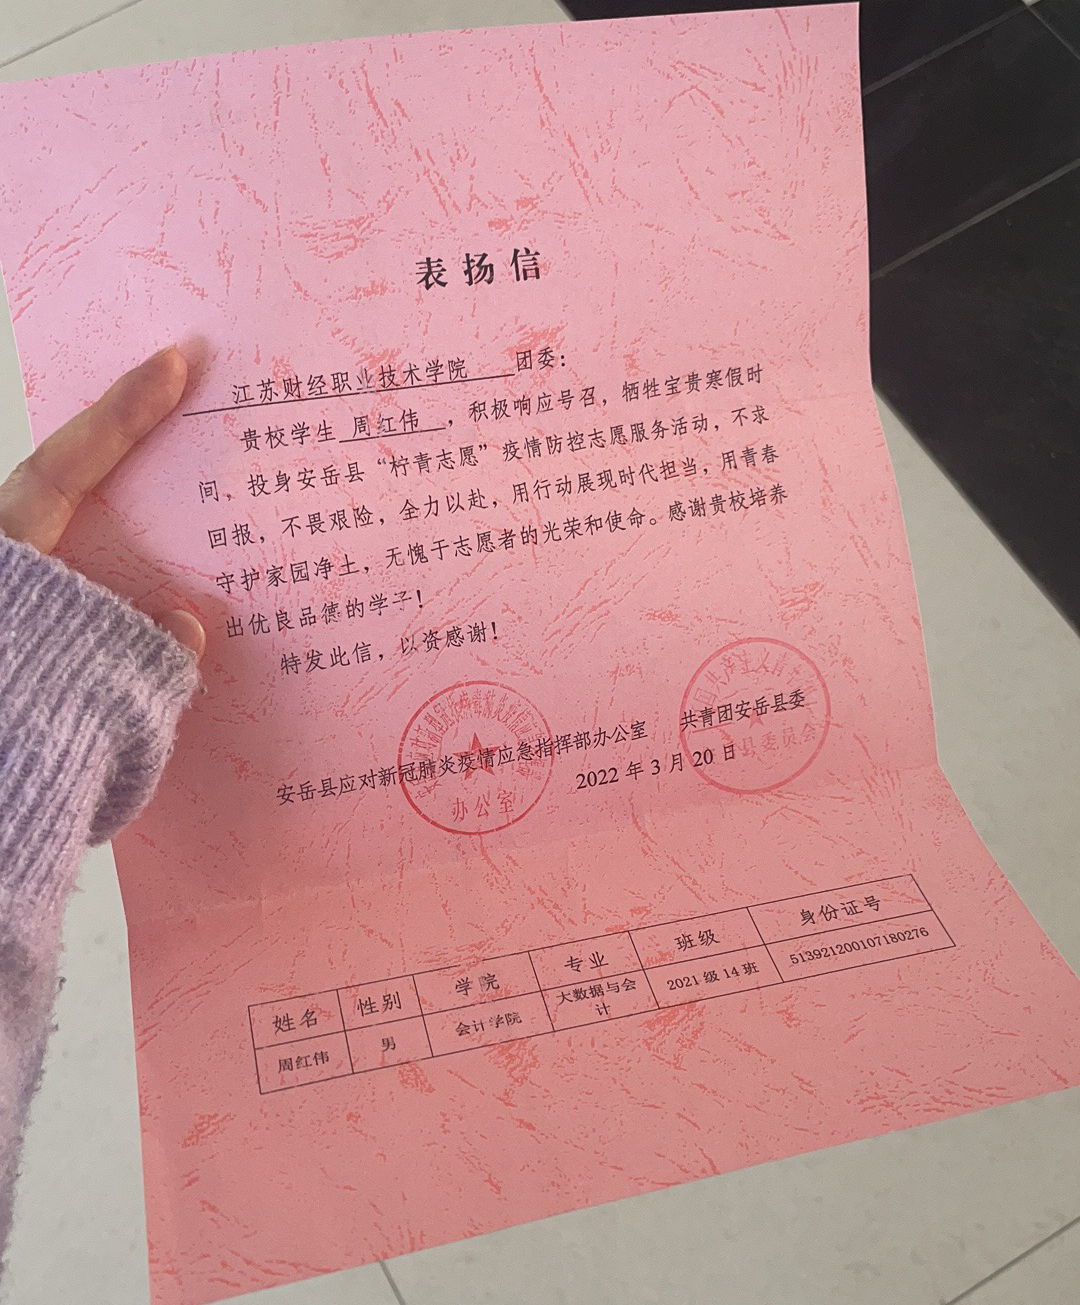 表扬信
江苏财经职业技术学院 团委：
贵校学生 周红伟 ，积极响应号召，牺牲宝贵寒假时
间，投身安岳县“柠青志愿”疫情防控志愿服务活动，不求
回报，不畏艰险，全力以赴，用行动展现时代担当，用青春
守护家园净土，无愧于志愿者的光荣和使命。感谢贵校培养
出优良品德的学子！
特发此信，以资感谢！
安岳县应对新冠肺炎疫情应急指挥部办公室 共青团安岳县委
2022年3月20日
办公室
县委员会
姓名 性别 学院 专业 班级 身份证号
周红伟 男 会计学院 大数据与会计 2021级14班 513921200107180276